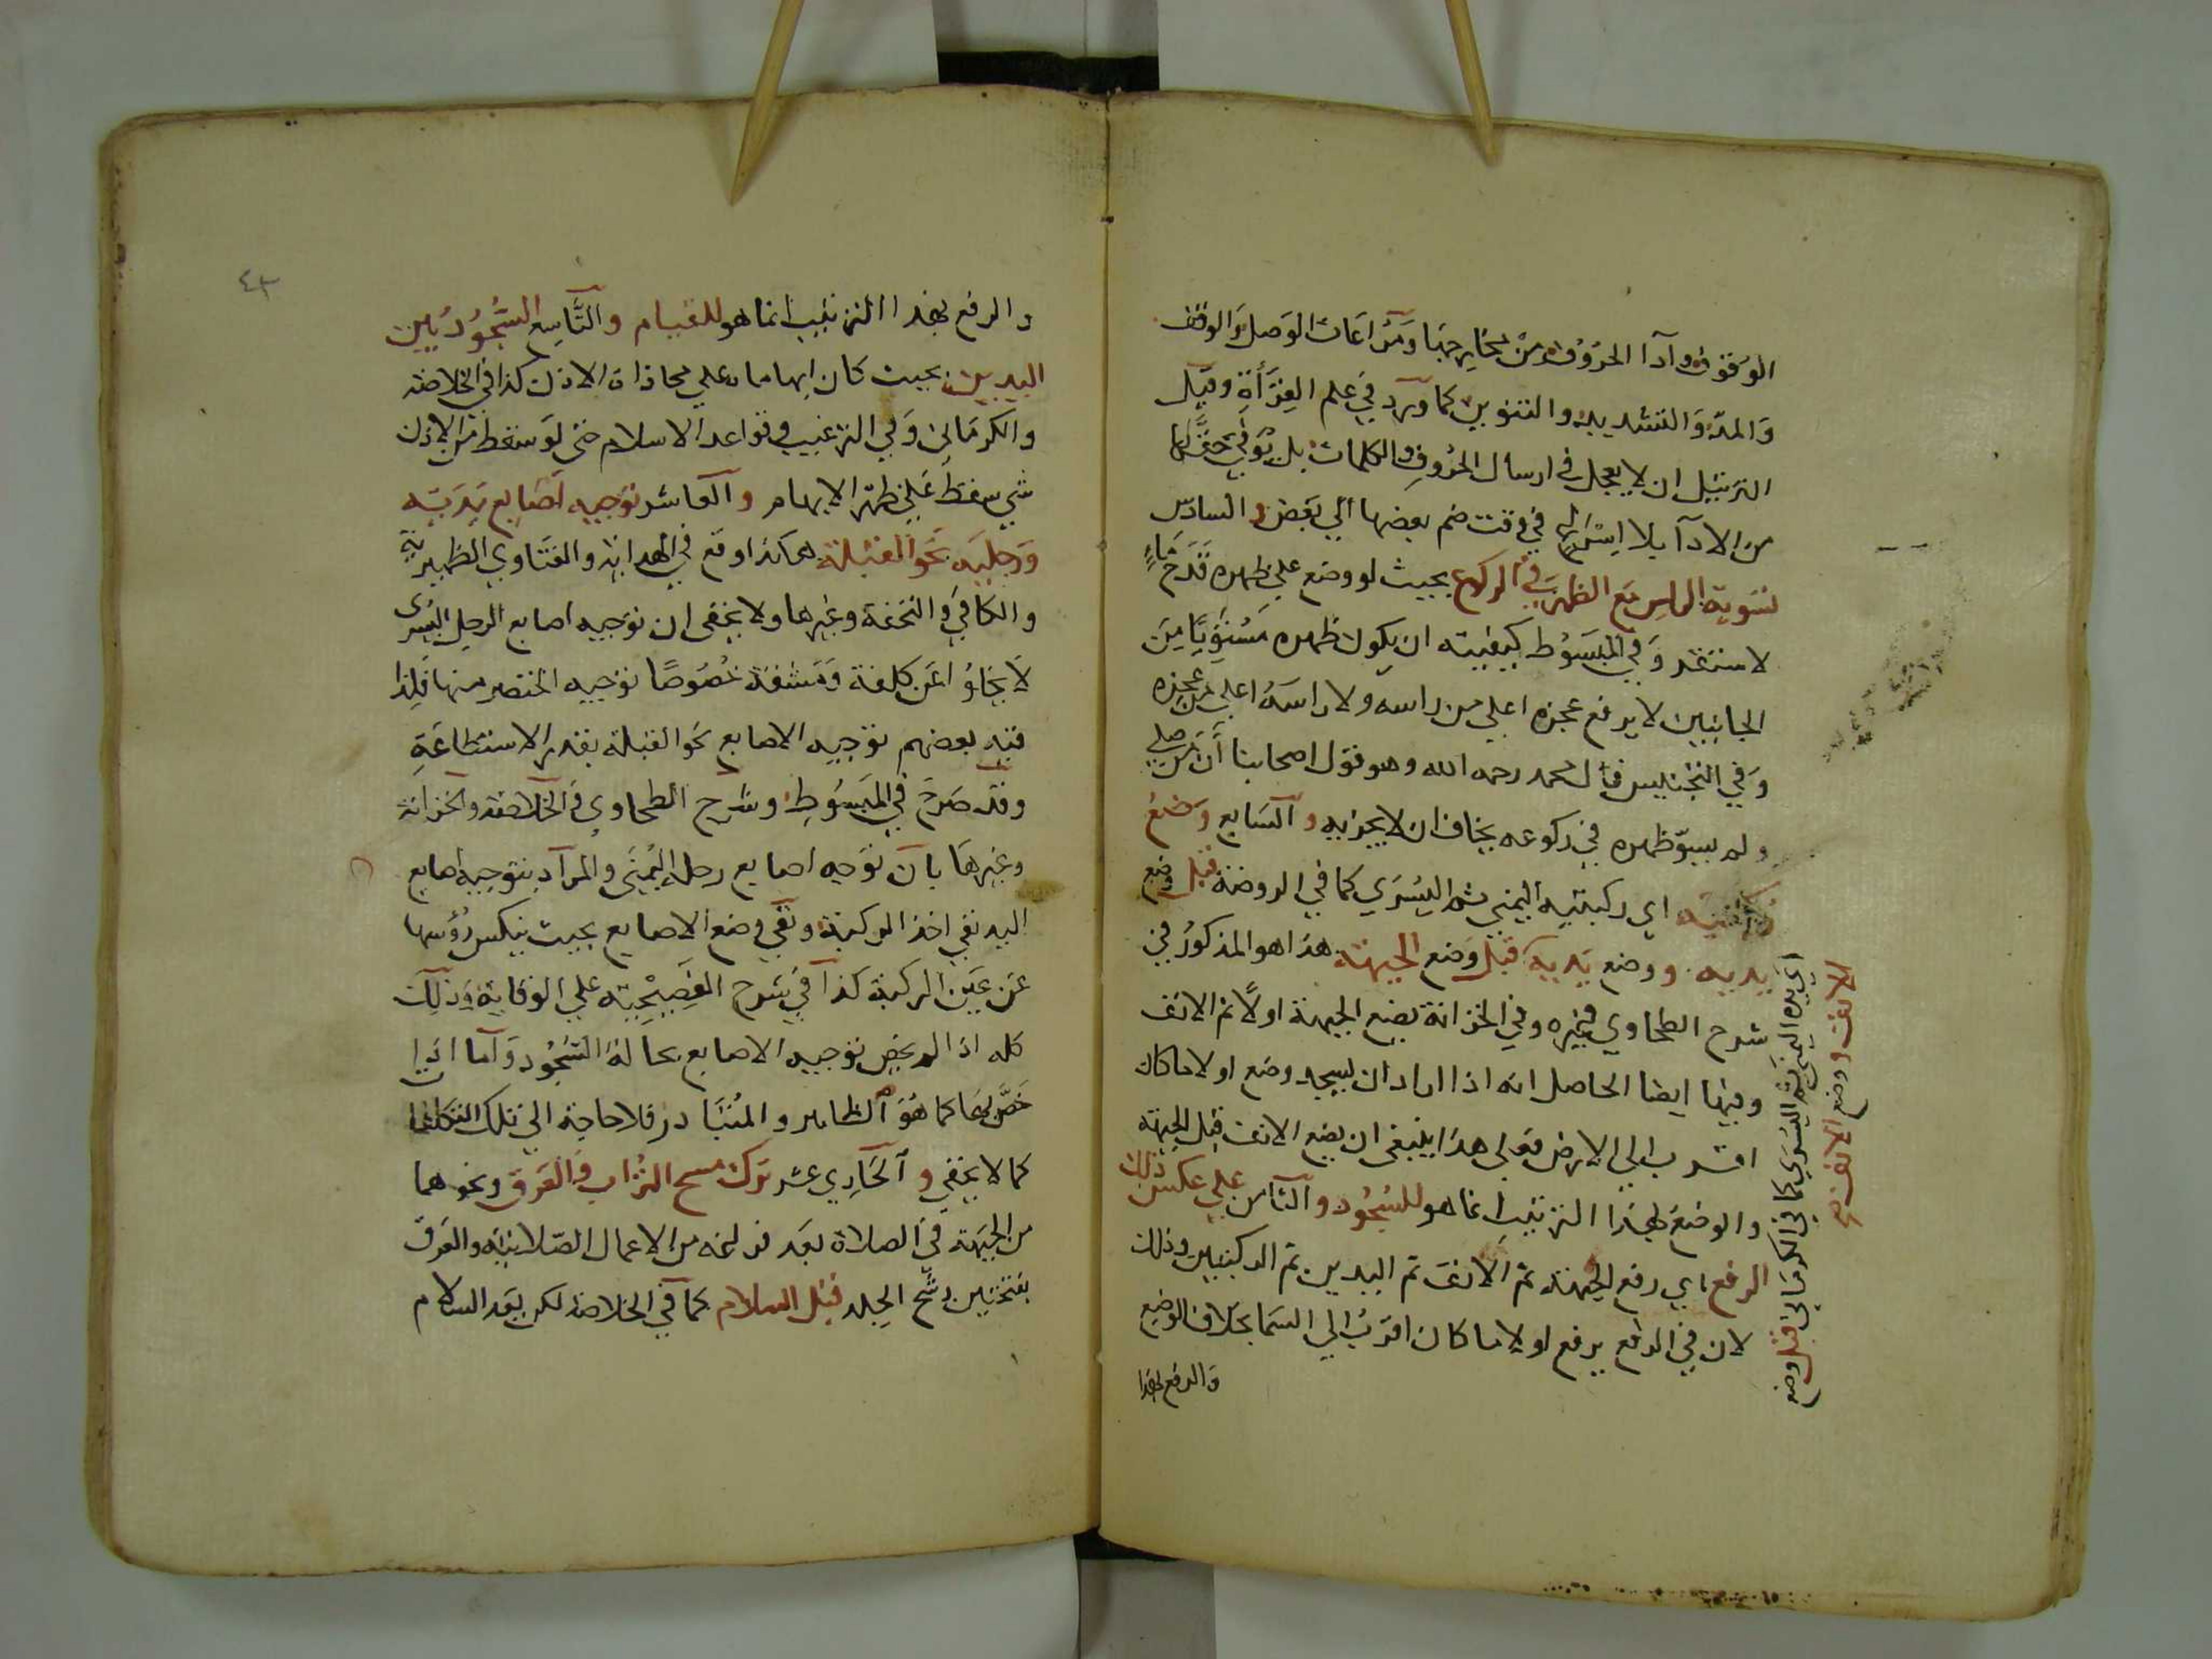 الوقوف وادآ الحروف من مخارجها ومراعات الوصل والوقف
والمد والتشديد والتنوين كما ورد في علم القرأة وقيل
الترتيل ان لا يعجل في ارسال الحروف والكلمات بل يوفي حقها
من الادآ بلا في وقت ضم بعضها الي بعض والسادس
تسوية الراس مع الظهر في الركوع بحيث لو وضع علي ظهره قدح ماء
لاستقر وفي المبسوط كيفيته ان يكون ظهره مستويا من
الجانبين لا يرفع عجزه اعلي من راسه ولا راسه اعلي من عجزه
وفي التجنيس قال محمد رحمه الله وهو قول اصحابنا أن من صلي
ولم يسوّ ظهره في ركوعه يخاف ان لا يجزيه والسابع وضع
ركبتيه اي ركبتيه اليمني ثم اليسري كما في الروضة قبل وضع
يديه ووضع يديه قبل وضع الجبهة هذا هو المذكور في
شرح الطحاوي وغيره وفي الخزانة يضع الجبهة اولًا ثم الانف
وفيها ايضا الحاصل انه اذا اراد ان يسجد وضع اولا ما كان
اقرب الي الارض فعلي هذا ينبغي ان يضع الانف قبل الجبهة
والوضع لهذا الترتيب انما هو للسجود والثامن علي عكس ذلك
الرفع اي رفع الجبهة ثم الانف ثم اليدين ثم الركبتين وذلك
لان في الرفع يرفع اولا ما كان اقرب الي السما بخلاف الوضع
والرفع لهذا
اي يده اليمني ثم اليسري كما في الكرماني قبل وضع
الانف ووضع الانف صح
٤٣
والرفع بهذا الترتيب انما هو للقيام والتاسع السجود بين
اليدين بحيث كان ابهاماه علي محاذاة الاذن كذا في الخلاصة
والكرماني وفي الترغيب وقواعد الاسلام حتي لو سقط من الاذن
شي سقط علي ظهر الابهام والعاشر توجيه اصابع يديه
ورجليه نحو القبلة هكذا وقع في الهداية والفتاوي الظهيرية
والكافي والتحفة وغيرها ولا يخفي ان توجيه اصابع الرجل اليسرى
لا يخلوا عن كلفة ومشقة خصوصًا توجيه الخنصر منها فلذا
قيد بعضهم توجيه الاصابع نحو القبلة بقدر الاستطاعة
وقد صرح في المبسوط وشرح الطحاوي في الخلاصة والخزانة
وغيرها بان توجيه اصابع رجله اليمني والمراد بتوجيه اصابع
اليد نفي اخذ الركبة ونفي وضع الاصابع بحيث ينكس رؤسها
عن عين الركبة كذا في شرح الفصيحية علي الوقاية وذلك
كله اذا لم يخص توجيه الاصابع بحالة السجود واما اذا
خص بها كما هو الظاهر والمتبادر فلا حاجة الي تلك التكلفات
كما لا يخفي والحادي عشر ترك مسح التراب والعرق ونحوهما
من الجبهة في الصلاة بعد فراغه من الاعمال الصلاتية والعرق
بفتحتين رشح الجلد قبل السلام كما في الخلاصة لكن بعد السلام